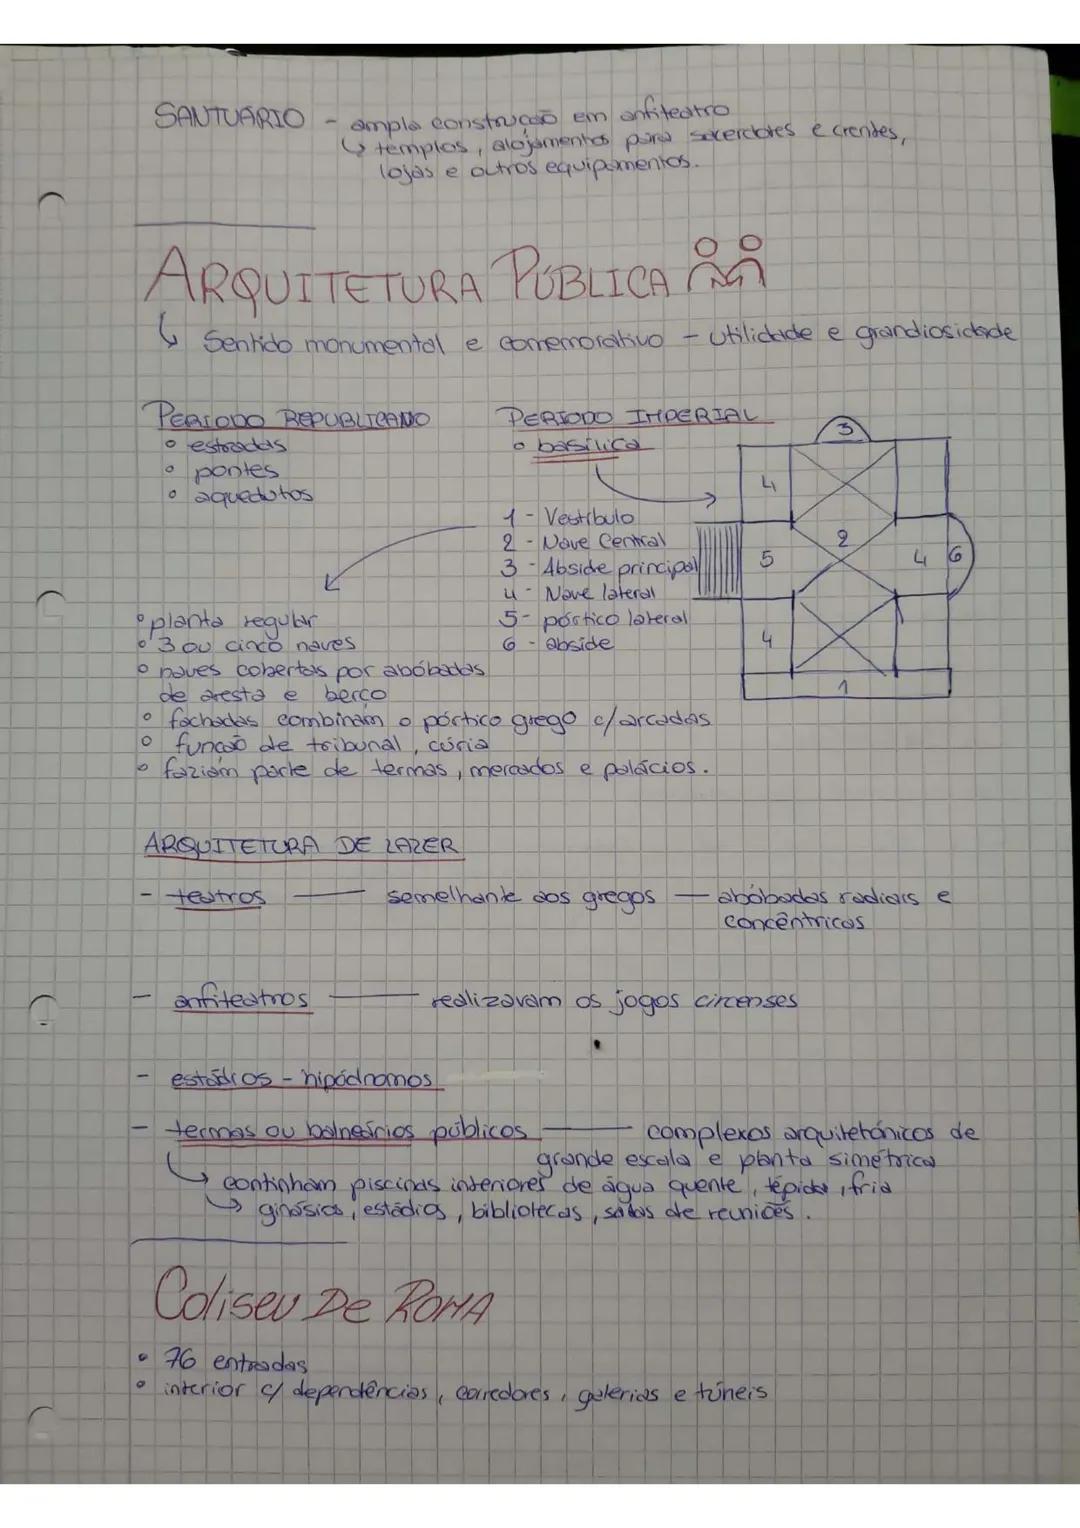 SANTUÁRIO - ampla construção em anfiteatro
↳ templos, alojamentos para sacerdotes e crentes,
lojas e outros equipamentos.
ARQUITETURA PÚBLICA
↳ Sentido monumental e comemorativo - utilidade e grandiosidade
PERÍODO REPUBLICANO
• estradas
• pontes
• aquedutos
PERÍODO IMPERIAL
• basílica
1 - Vestíbulo
2 - Nave Central
3 - Abside principal
4 - Nave lateral
5 - pórtico lateral
6 - abside
3
4
2
5
4
6
4
1
• planta regular
• 3 ou cinco naves
• naves cobertas por abóbadas
de aresta e berço
• fachadas combinam o pórtico grego c/ arcadas
• função de tribunal, cúria
• faziam parte de termas, mercados e palácios.
ARQUITETURA DE LAZER
- teatros — semelhante aos gregos — abóbadas radiais e
concêntricas
- anfiteatros — realizavam os jogos circenses
- estádios - hipódromos
- termas ou balneários públicos — complexos arquitetónicos de
grande escala e planta simétrica
↳ continham piscinas interiores de água quente, tépida, fria
↳ ginásios, estádios, bibliotecas, salas de reuniões.
Coliseu De ROMA
• 76 entradas
• interior c/ dependências, corredores, galerias e túneis